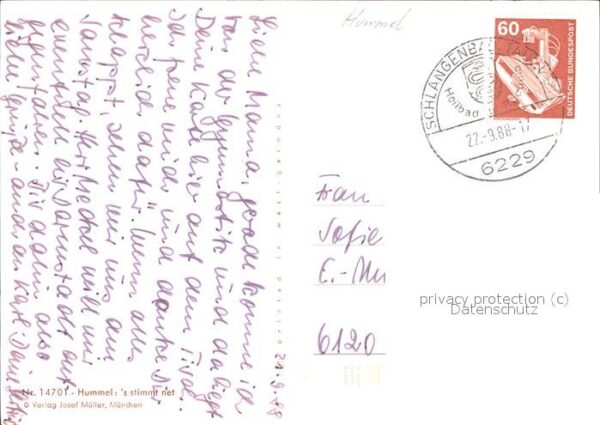 Hummel
60
DEUTSCHE BUNDESPOST
SCHLANGENBAD
Heilbad
22.-9.88-17
6229
Liebe Mama, gerade komme ich
von der Gymnastik und da liegt
Deine Karte hier auf dem Tisch.
Ich freue mich und danke Dir
herzlich dafür. Wenn alles
klappt, sehen wir uns am
Samstag. will mir
eventuell in Darmstadt auf
. Bis dahin also
liebe Grüße - auch an Karl - Deine
21.9.88
Frau
Sofie
E.-Mu
6120
privacy protection (c)
Datenschutz
Nr. 14701 - Hummel: 's stimmt net
© Verlag Josef Müller, München